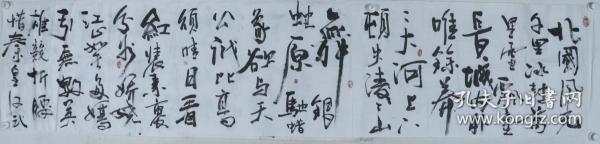 北國風光
千里冰封萬
里雪飄望
長城內外
唯餘莽
大河上下
頓失滔滔山
舞銀
蛇原馳蠟
象欲与天
公試比高
須晴日看
紅裝素裹
分外妖嬈
江山如此多嬌
引無數英
雄競折腰
惜秦皇漢武
孔夫子旧书网